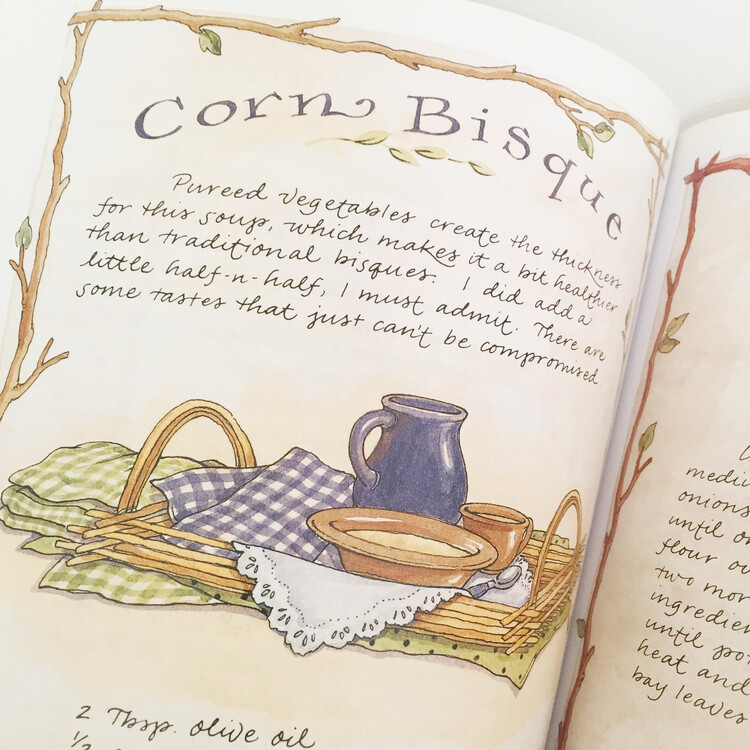 Corn Bisque
Pureed vegetables create the thickness
for this soup, which makes it a bit healthier
than traditional bisques. I did add a
little half-n-half, I must admit. There are
some tastes that just can't be compromised
2 Tbsp. olive oil
onions
until
flour
two
until
heat and
bay leaves